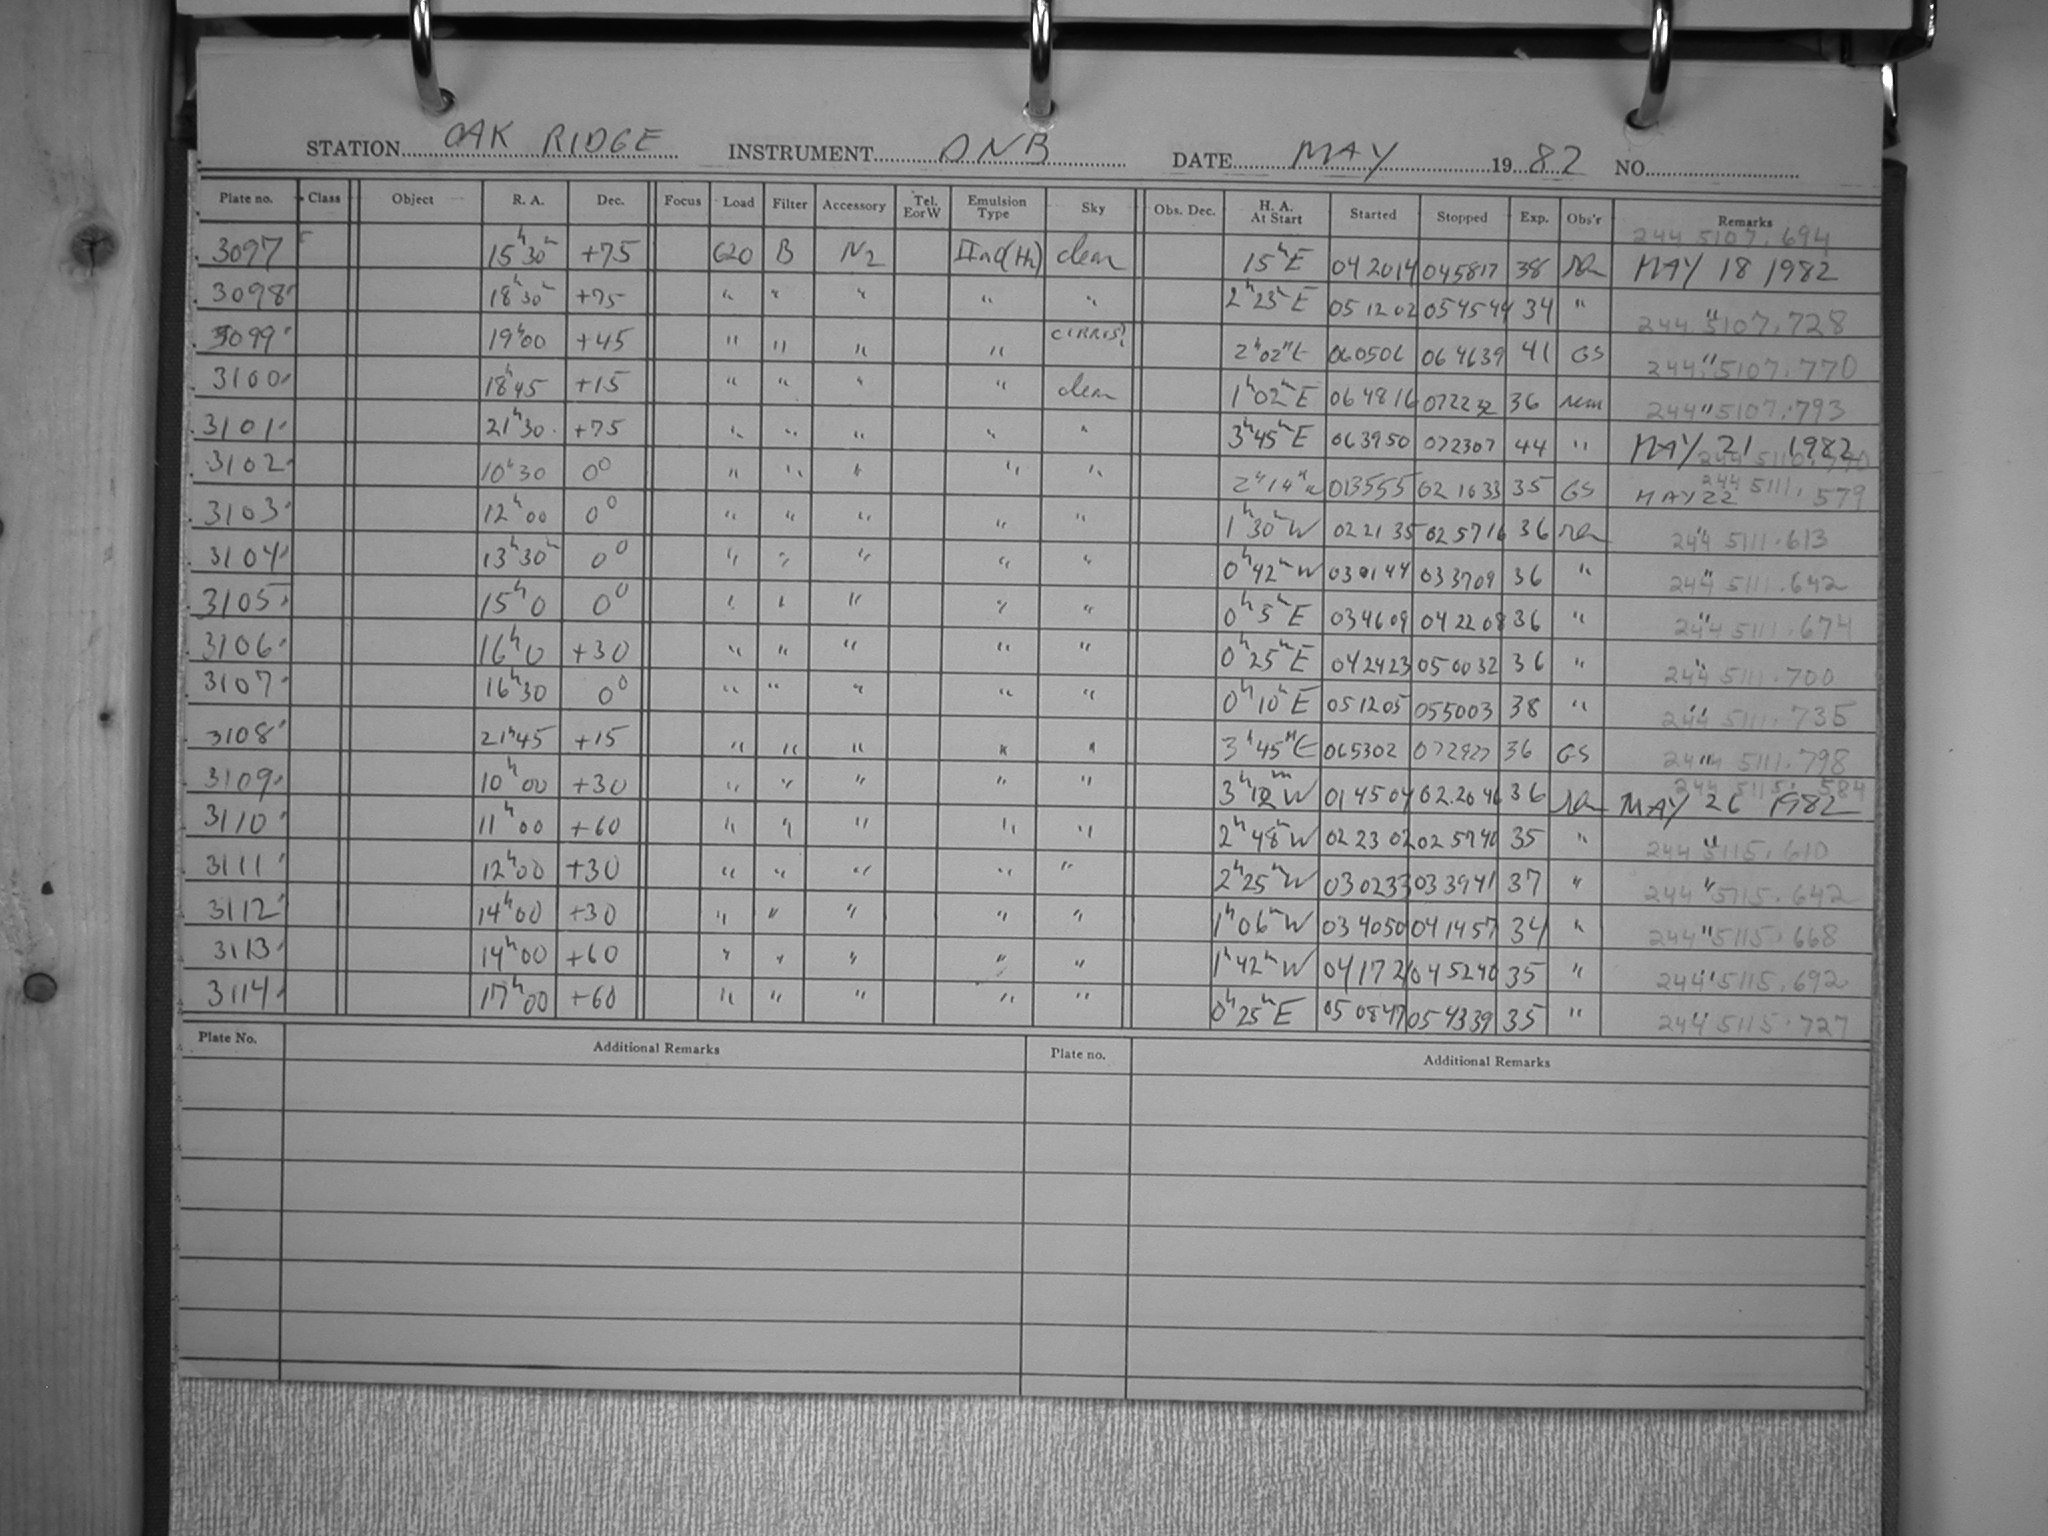 STATION OAK RIDGE INSTRUMENT DNB DATE MAY 1982 NO.
Plate no. Class Object R. A. Dec. Focus Load Filter Accessory Tel. EorW Emulsion Type Sky Obs. Dec. H. A. At Start Started Stopped Exp. Obs'r Remarks
244 5107.694
3097 15h30m +75 G20 B N2 clear 15hE 042014 045817 38 MAY 18 1982
3098 18h30m +75 " " " " " 2h23mE 051202 054544 34 " " 244 5107.728
3099 19h00 +45 " " " " CIRRUS? 2h02mE 060506 064639 41 GS " 244 5107.770
3100 18h45 +15 " " " " clear 1h02mE 064816 072232 36 " 244 5107.793
3101 21h30 +75 " " " " " 3h45mE 063950 072307 44 " MAY 21 1982 244 5110.770
3102 10h30 0° " " " " " 2h14m 013555 021633 35 GS MAY 22 244 5111.579
3103 12h00 0° " " " " " 1h30mW 022135 025716 36 " 244 5111.613
3104 13h30m 0° " " " " " 0h42mW 030144 033709 36 " " 244 5111.642
3105 15h0 0° " " " " " 0h5mE 034609 042208 36 " " 244 5111.674
3106 16h0 +30 " " " " " 0h25mE 042423 050032 36 " " 244 5111.700
3107 16h30 0° " " " " " 0h10mE 051205 055003 38 " " 244 5111.735
3108 21h45 +15 " " " " " 3h45mE 065302 072927 36 GS " 244 5111.798
3109 10h00 +30 " " " " " 3h12mW 014504 02.2046 36 MAY 26 1982 244 5115.584
3110 11h00 +60 " " " " " 2h48mW 022302 025740 35 " " 244 5115.610
3111 12h00 +30 " " " " " 2h25mW 030233 033941 37 " " 244 5115.642
3112 14h00 +30 " " " " " 1h06mW 034050 041457 34 " " 244 5115.668
3113 14h00 +60 " " " " " 1h42mW 041721 045240 35 " " 244 5115.692
3114 17h00 +60 " " " " " 0h25mE 050847 054339 35 " " 244 5115.727
Plate No. Additional Remarks Plate no. Additional Remarks